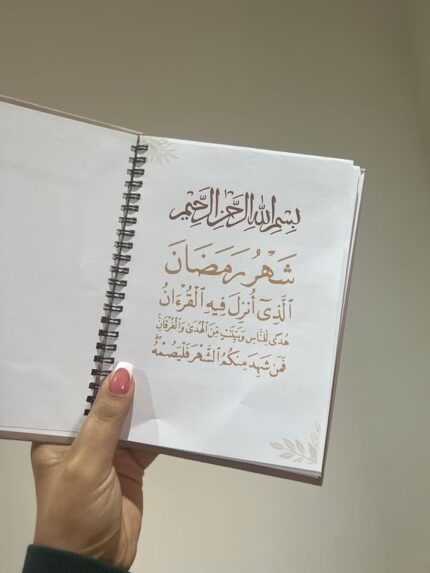 بِسْمِ اللَّهِ الرَّحْمَٰنِ الرَّحِيمِ
شَهْرُ رَمَضَانَ
الَّذِىٓ أُنزِلَ فِيهِ الْقُرْءَانُ
هُدًى لِّلنَّاسِ وَبَيِّنَٰتٍ مِّنَ الْهُدَىٰ وَالْفُرْقَانِ
فَمَن شَهِدَ مِنكُمُ الشَّهْرَ فَلْيَصُمْهُ ۖ